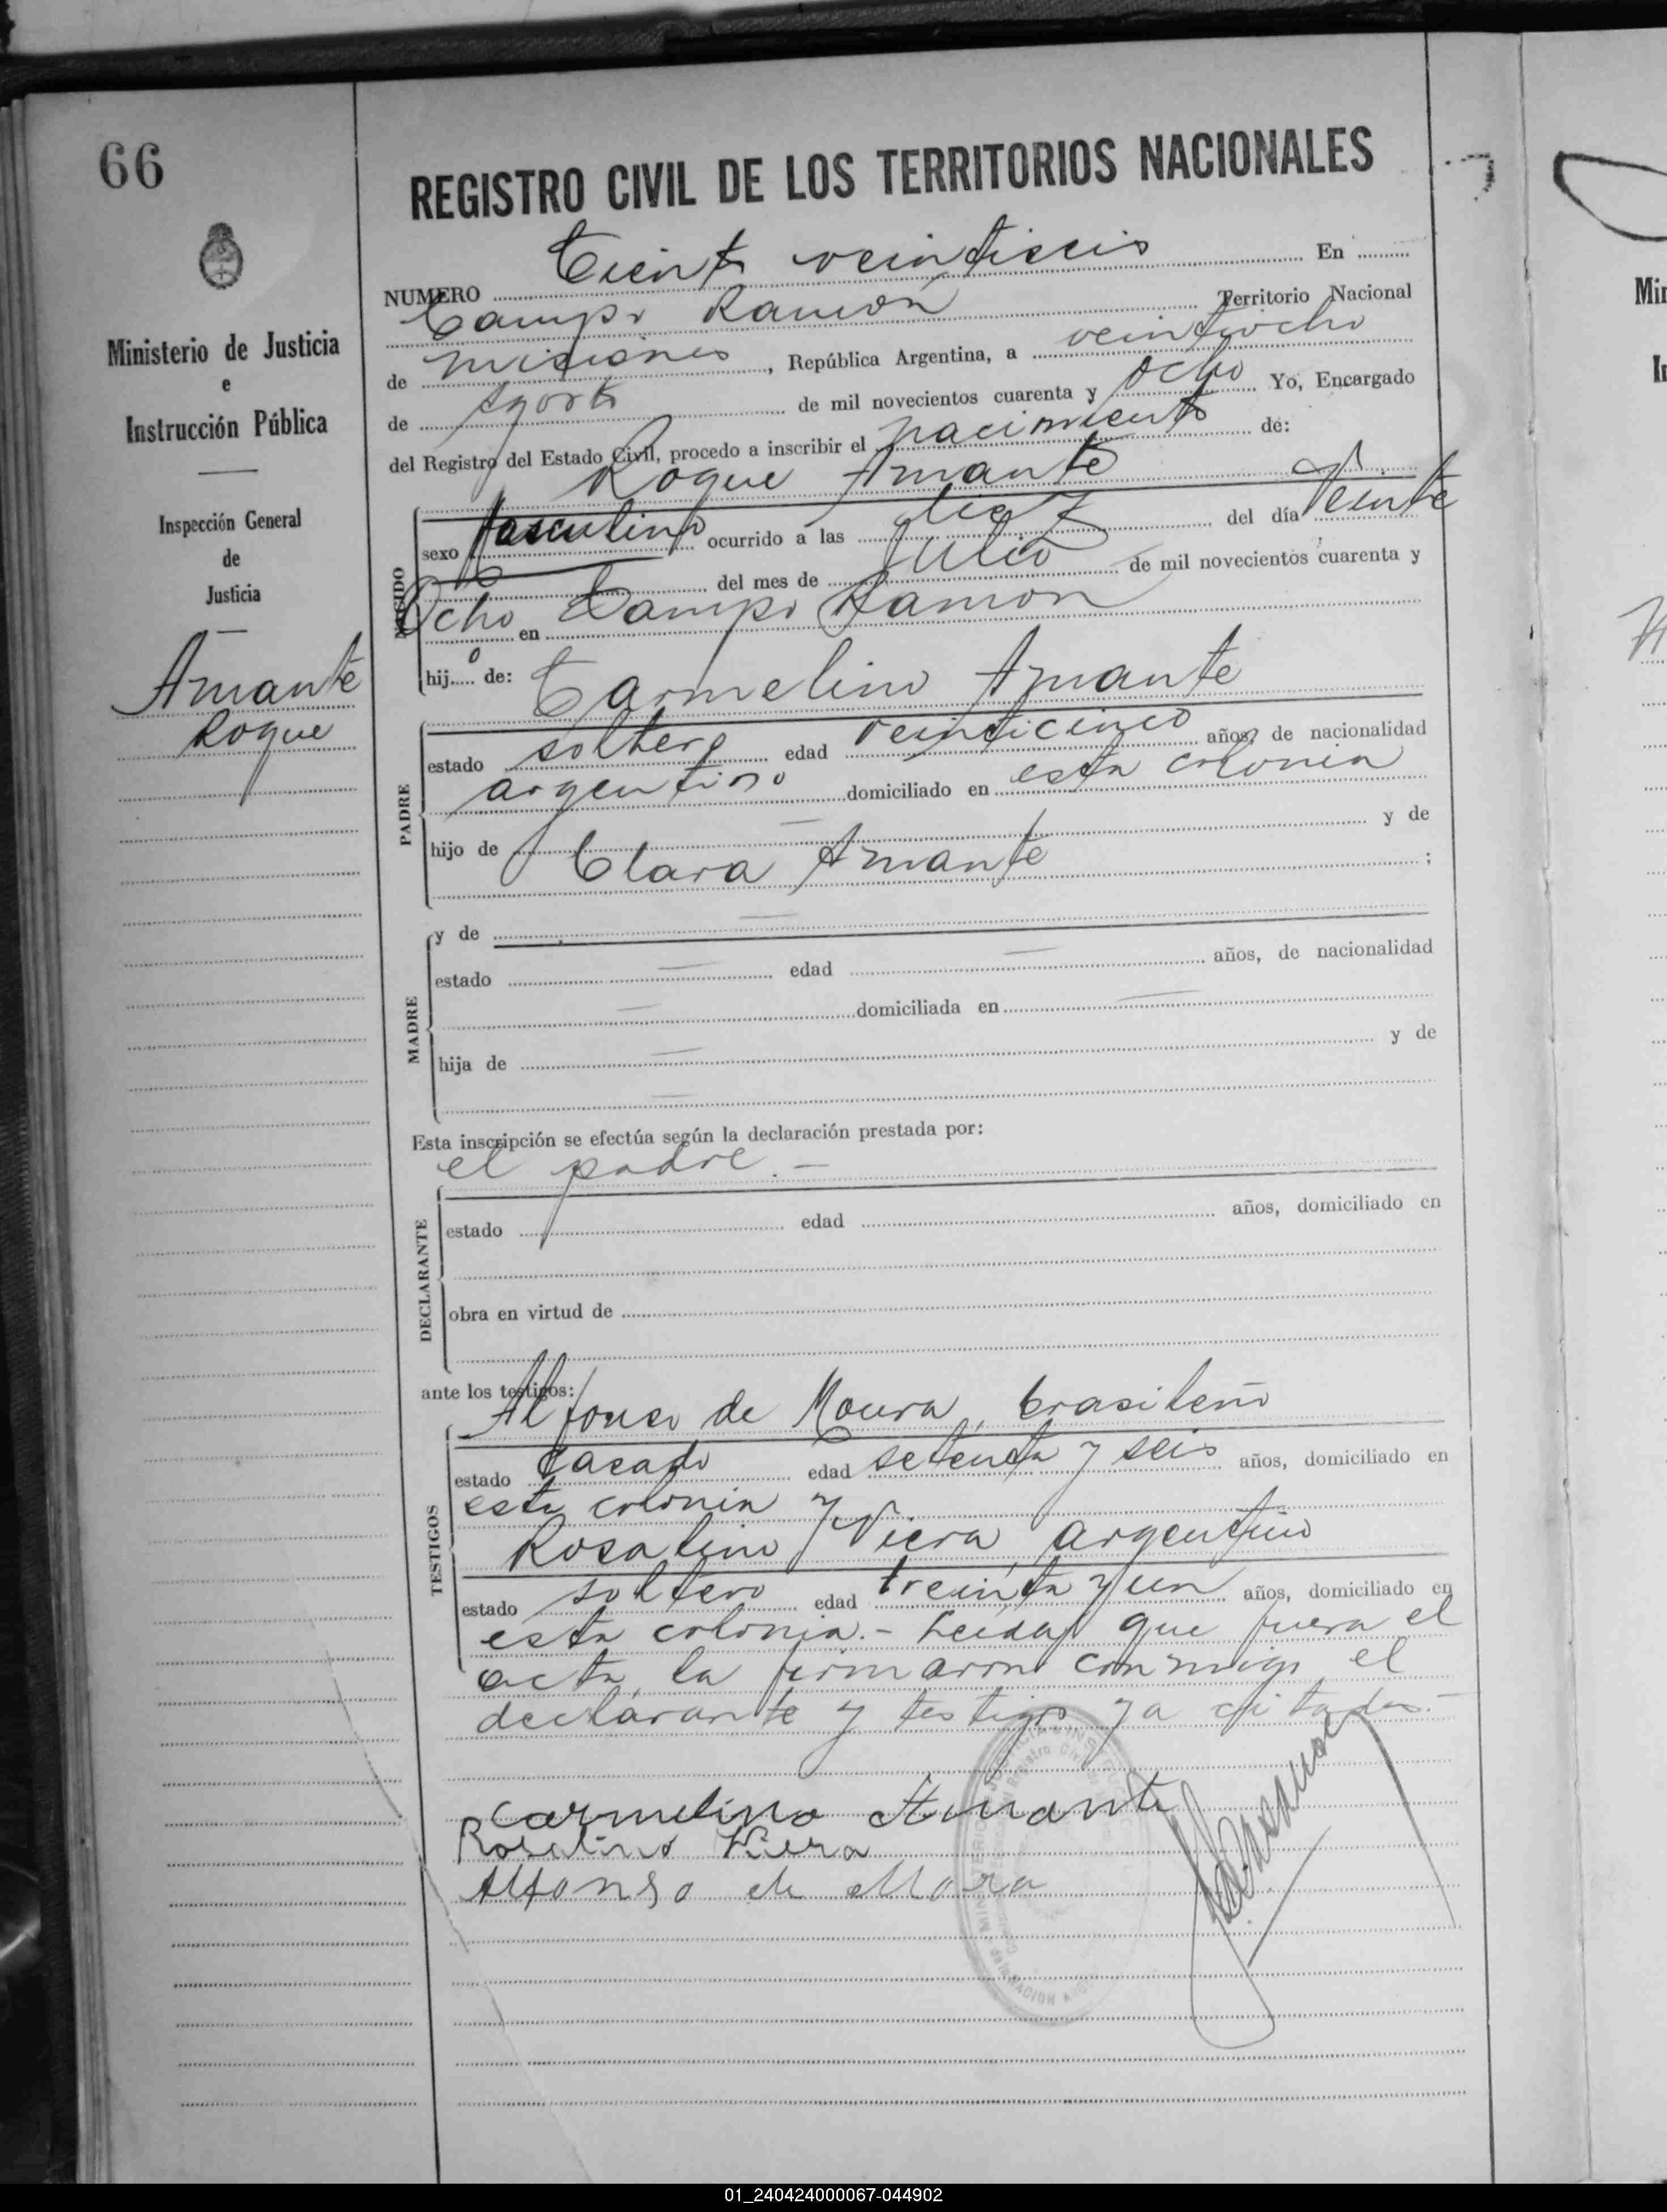 66
REGISTRO CIVIL DE LOS TERRITORIOS NACIONALES
Ministerio de Justicia
e
Instrucción Pública
Inspección General
de
Justicia
Amante
Roque
NUMERO Ciento veintiseis En
Campo Ramón Territorio Nacional
de Misiones, República Argentina, a veintiocho
de Agosto de mil novecientos cuarenta y ocho Yo, Encargado
del Registro del Estado Civil, procedo a inscribir el nacimiento de:
Roque Amante
sexo Masculino ocurrido a las diez del día Veinte
del mes de Julio de mil novecientos cuarenta y
Ocho en Campo Ramon
NACIDO
hijo de: Carmelino Amante
PADRE
estado soltero edad veinticinco años, de nacionalidad
argentino domiciliado en esta colonia
hijo de — y de
Clara Amante ;
MADRE
y de —
estado — edad — años, de nacionalidad
— domiciliada en —
hija de — y de
—
Esta inscripción se efectúa según la declaración prestada por:
el padre.-
DECLARANTE
estado edad años, domiciliado en
obra en virtud de
ante los testigos:
Alfonso de Moura, brasileño
TESTIGOS
estado Casado edad setenta y seis años, domiciliado en
esta colonia y
Rosalino Viera, argentino
estado soltero edad treinta y un años, domiciliado en
esta colonia.- Leida que fuera el
acta, la firmaron conmigo, el
declarante y testigos ya citados.-
Carmelino Amante
Rosalino Viera
Alfonso de Mora
01_240424000067-044902